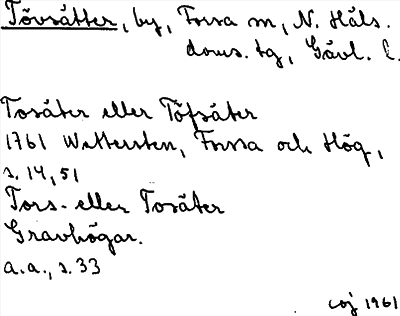 Tövsätter, by, Forsa sn, N. Häls.
doms. tg, Gävl. l.
Tosäter eller Töfsäter
1761 Wettersten, Forssa och Hög,
s. 14, 51
Tors- eller Tosäter
Gravhögar.
a.a., s. 33
coj 1961